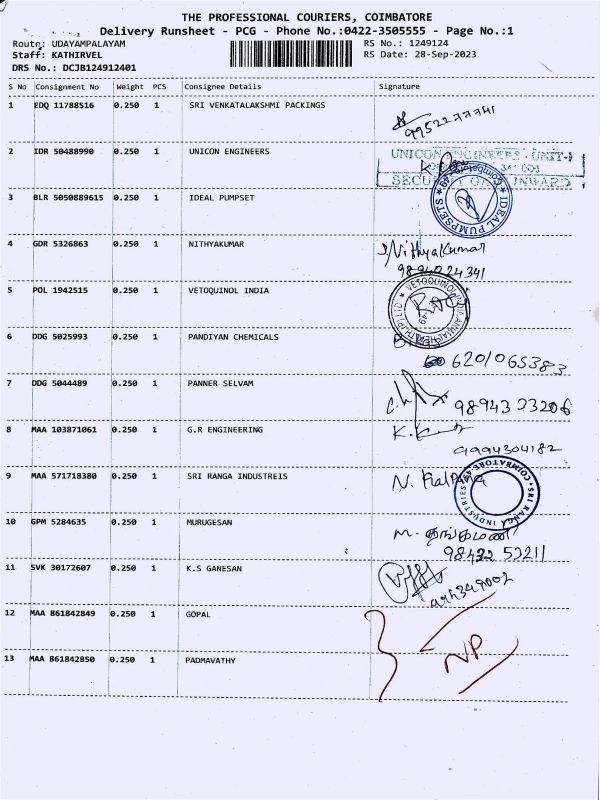 THE PROFESSIONAL COURIERS, COIMBATORE
Delivery Runsheet - PCG - Phone No.:0422-3505555 - Page No.:1
Route: UDAYAMPALAYAM RS No.: 1249124
Staff: KATHIRVEL RS Date: 28-Sep-2023
DRS No.: DCJB124912401
S No Consignment No Weight PCS Consignee Details Signature
1 EDQ 11788516 0.250 1 SRI VENKATALAKSHMI PACKINGS
2 IDR 50488990 0.250 1 UNICON ENGINEERS
UNICON ENGINEERS - UNIT-I
SECURITY GATE INWARD
3 BLR 5050889615 0.250 1 IDEAL PUMPSET
IDEAL PUMPSETS Coimbatore-49
4 GDR 5326863 0.250 1 NITHYAKUMAR NithyaKumar
9894024341
5 POL 1942515 0.250 1 VETOQUINOL INDIA
VETOQUINOL INDIA
6 DDG 5025993 0.250 1 PANDIYAN CHEMICALS
6201065383
7 DDG 5044489 0.250 1 PANNER SELVAM
98943 33206
8 MAA 103871061 0.250 1 G.R ENGINEERING
9994304182
9 MAA 571718380 0.250 1 SRI RANGA INDUSTREIS N. Kalpana
SRI RANGA INDUSTRIES COIMBATORE
10 GPM 5284635 0.250 1 MURUGESAN M. தங்கமணி
98432 53211
11 SVK 30172607 0.250 1 K.S GANESAN
12 MAA 861842849 0.250 1 GOPAL
NP
13 MAA 861842850 0.250 1 PADMAVATHY